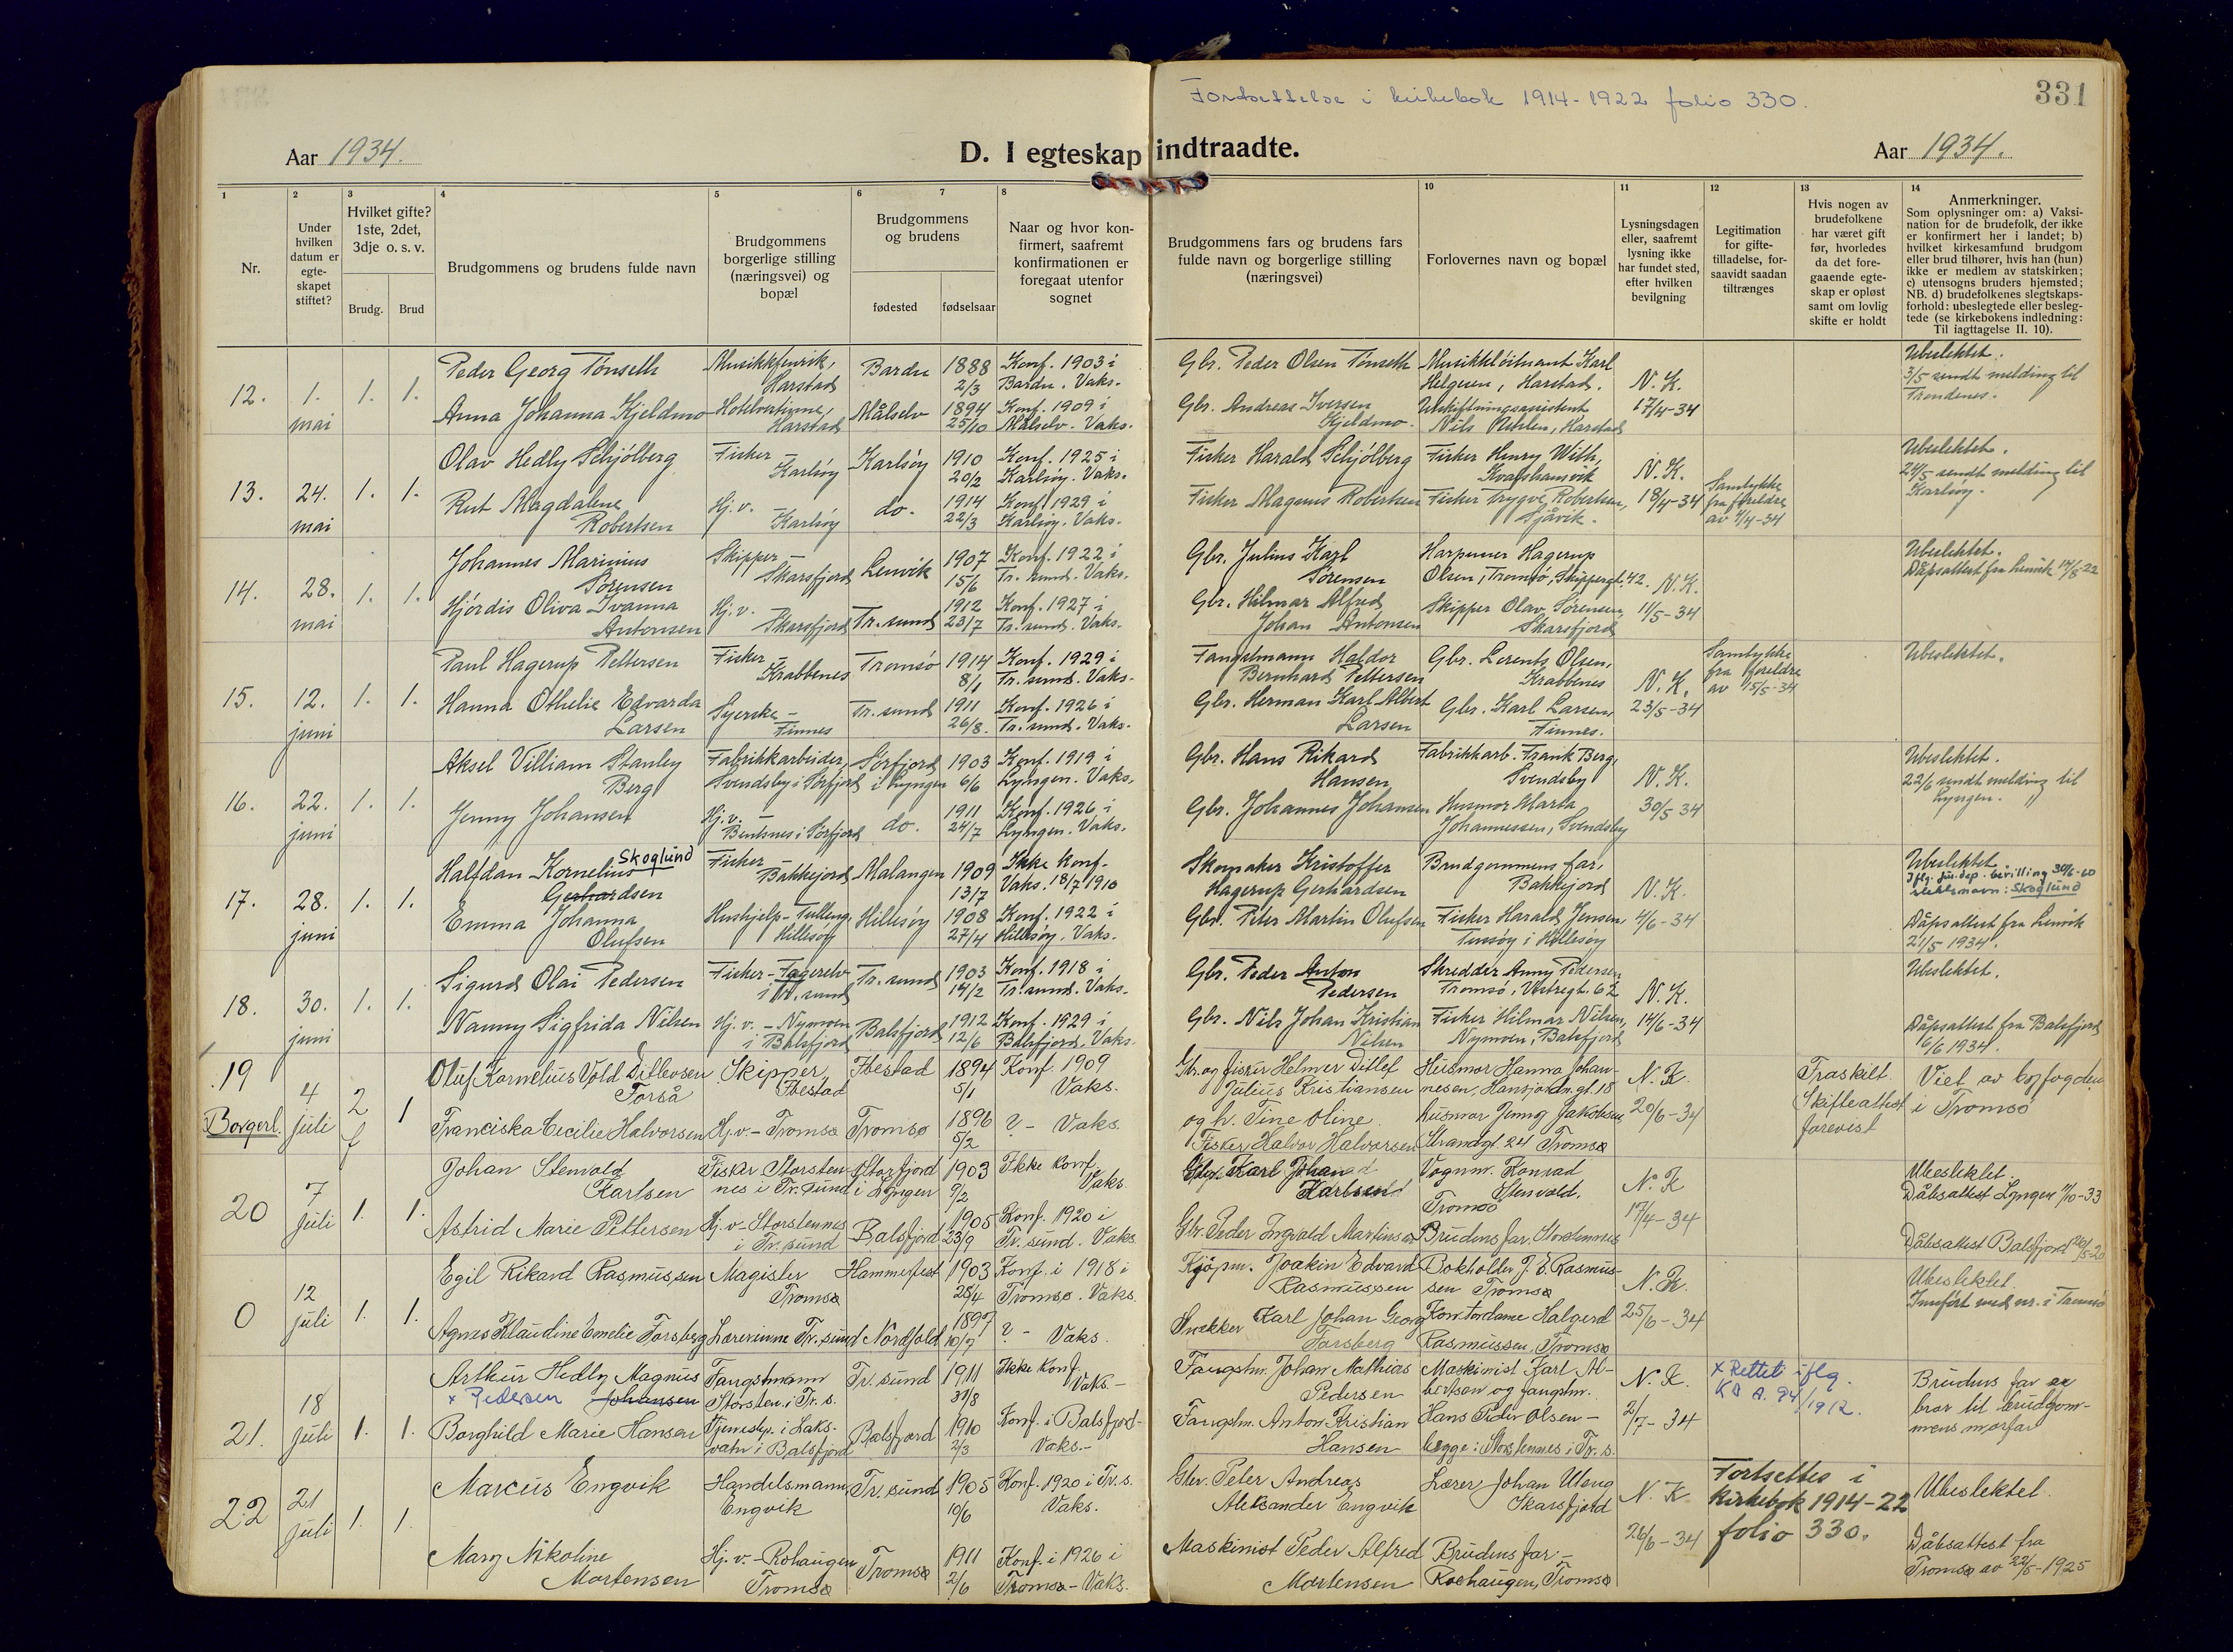 Fortsettelse i kirkebok 1914-1922 folio 330.
331
Aar 1934.
D. I egteskap indtraadte.
Aar 1934.
1
2
3
4
5
6
7
8
10
11
12
13
14
Nr.
Under hvilken datum er egteskapet stiftet?
Hvilket gifte? 1ste, 2det, 3dje o. s. v.
Brudg.
Brud
Brudgommens og brudens fulde navn
Brudgommens borgerlige stilling (næringsvei) og bopæl
Brudgommens og brudens
fødested
fødselsaar
Naar og hvor konfirmert, saafremt konfirmationen er foregaat utenfor sognet
Brudgommens fars og brudens fars fulde navn og borgerlige stilling (næringsvei)
Forlovernes navn og bopæl
Lysningsdagen eller, saafremt lysning ikke har fundet sted, efter hvilken bevilgning
Legitimation for giftetilladelse, forsaavidt saadan tiltrænges
Hvis nogen av brudefolkene har været gift før, hvorledes da det foregaaende egteskap er opløst samt om lovlig skifte er holdt
Anmerkninger.
Som oplysninger om: a) Vaksination for de brudefolk, der ikke er konfirmert her i landet; b) hvilket kirkesamfund brudgom eller brud tilhører, hvis han (hun) ikke er medlem av statskirken; c) utensogns bruders hjemsted; NB. d) brudefolkenes slegtskapsforhold: ubeslegtede eller beslegtede (se kirkebokens indledning: Til iagttagelse II. 10).
12. 1. mai 1. 1.
Peder Georg Tønseth Musikkfenrik, Harstad Bardu 1888 2/3 Konf. 1903 i Bardu. Vaks.
Gbr. Peder Olsen Tønseth Musikkløitnant Karl Helgesen, Harstad. N. K. 17/4-34 Ubeslektet. 3/5 sendt melding til Trondenes.
Anna Johanna Kjeldmo Hotelvertinne, Harstad Målselv 1894 25/10 Konf. 1909 i Målselv. Vaks.
Gbr. Andreas Iversen Kjeldmo. Utskiftningsassistent Nils , Harstad
13. 24. mai 1. 1.
Olav Hedly Schjølberg Fisker - Karlsøy Karlsøy 1910 20/2 Konf. 1925 i Karlsøy. Vaks.
Fisker Harald Schjølberg Fisker Henry With, N. K. 18/4-34 Samtykke fra foreldre av 4/4-34 Ubeslektet. 24/5 sendt melding til Karlsøy.
Rut Magdalene Robertsen Hj. v. - Karlsøy do. 1914 22/3 Konf. 1929 i Karlsøy. Vaks.
Fisker Magnus Robertsen Fisker Trygve Robertsen, Sjåvik.
14. 28. mai 1. 1.
Johannes Marinius Sørensen Skipper - Skarsfjord Lenvik 1907 15/6 Konf. 1922 i Tr. sund. Vaks.
Gbr. Julius Karl Sørensen Harpuner Hagerup Olsen, Tromsø, Skippergt. 42. N. K. 11/5-34 Ubeslektet. Dåpsattest fra Lenvik 14/8-22
Hjørdis Oliva Ivanna Antonsen Hj. v. - Skarsfjord Tr. sund 1912 23/7 Konf. 1927 i Tr. sund. Vaks.
Gbr. Hilmar Alfred Johan Antonsen Skipper Olav Sørensen Skarsfjord
15. 12. juni 1. 1.
Paul Hagerup Pettersen Fisker - Krabbenes Tromsø 1914 8/1 Konf. 1929 i Tr. sund. Vaks.
Fangstmann Haldor Bernhard Pettersen Gbr. Lorents Olsen, Krabbenes N. K. 23/5-34 Samtykke fra foreldre av 15/5-34 Ubeslektet.
Hanna Othelie Edvarda Larsen Syerske - Finnes Tr. sund 1911 26/8. Konf. 1926 i Tr. sund. Vaks.
Gbr. Herman Karl Albert Larsen Gbr. Karl Larsen, Finnes.
16. 22. juni 1. 1.
Aksel Villiam Stanley Berg Fabrikkarbeider, Svendsby i Sørfjord Sørfjord i Lyngen 1903 6/6 Konf. 1919 i Lyngen. Vaks.
Gbr. Hans Rikard Hansen Fabrikkarb. Frank Berg, Svendsby N. K. 30/5 34 Ubeslektet. 22/6 sendt melding til Lyngen.
Jenny Johansen Hj. v. - i Sørfjord do. 1911 24/7 Konf. 1926 i Lyngen. Vaks.
Gbr. Johannes Johansen Husmor Marta Johannessen, Svendsby
17. 28. juni 1. 1.
Halfdan Kornelius Skoglund Gerhardsen Fisker - Bakkejord Malangen 1909 13/7 Ikke konf. Vaks. 18/7 1910
Skomaker Kristoffer Hagerup Gerhardsen Brudgommens far, Bakkejord N. K. 4/6-34 Ubeslektet. Iflg. Jus.dep. bevilling 30/6-60 slektsnavn: Skoglund
Emma Johanna Olufsen Hushjelp - Tulleng, Hillesøy Hillesøy 1908 27/4 Konf. 1922 i Hillesøy. Vaks.
Gbr. Peter Martin Olufsen Fisker Harald Jensen, Tussøy i Hillesøy Dåpsattest fra Lenvik 21/5 1934.
18. 30. juni 1. 1.
Sigurd Olai Pedersen Fisker - Fagerelv i Tr. sund Tr. sund 1903 14/2 Konf. 1918 i Tr. sund. Vaks.
Gbr. Peder Anton Pedersen Skredder Anny Pedersen Tromsø, Vestregt. 62 N. K. 14/6-34 Ubeslektet.
Nanny Sigfrida Nilsen Hj. v. - Nymoen i Balsfjord Balsfjord 1912 12/6 Konf. 1929 i Balsfjord. Vaks.
Gbr. Nils Johan Kristian Nilsen Fisker Hilmar Nilsen, Nymoen, Balsfjord Dåpsattest fra Balsfjord 6/6 1934.
19 Borgerl. 4 juli 2 f 1
Oluf Kornelius Vold Ditlevsen Torså Skipper, Ibestad Ibestad 1894 5/1 Konf. 1909 Vaks.
Gbr. og fisker Helmer Ditlef Julius Kristiansen og h. Tine Oline Husmor Hanna Johannesen, Hansjordn.gt. 18 N. K. 20/6-34 Fraskilt. Skifteattest forevist Viet av byfogden i Tromsø
Franciska Cecilie Halvorsen Hj. v. - Tromsø Tromsø 1896 5/2 ? - Vaks.
Fisker Halvor Halvorsen husmor Jenny Jakobsen, Strandgt 24 Tromsø
20 7 juli 1. 1.
Johan Stenvold Karlsen Fisker Storstennes i Tr. sund Storfjord i Lyngen 1903 9/2 Ikke konf. Vaks
Karl Johan Karlsen Vognm. Konrad Stenvold, Tromsø N. K 17/4-34 Ubeslektet. Dåbsattest Lyngen 11/10-33
Astrid Marie Pettersen Hj. v - Storstennes i Tr. sund Balsfjord 1905 23/9 Konf. 1920 i Tr. sund. Vaks
Gbr. Peder Ingvald Martinsen Brudens far, Storstennes Dåbsattest Balsfjord 20/5-20
0 12 juli 1. 1.
Egil Rikard Rasmussen Magister Tromsø Hammerfest 1903 28/4 Konf. i 1918 i Tromsø. Vaks.
Kjøpm. Joakin Edvard Rasmussen Bokholder J. E. Rasmussen Tromsø N. K. 25/6-34 Ubeslektet. Innført med nr. i Tromsø
Agnes Klaudine Emelie Forsberg Lærerinne Tr. sund Nordfold 1897 10/7 ? - Vaks.
Snekker Karl Johan Georg Forsberg Kontordame Halgerd Rasmussen, Tromsø
21. 18 juli 1. 1.
Arthur Hedly Magnus x Pedersen Johansen Fangstmann Storsten. i Tr. s. Tr. sund 1911 31/8 Ikke konf. Vaks. -
Fangstm. Johan Mathias Pedersen Maskinist Karl Albertsen og fangstm. N. K. 2/7-34 x Rettet iflg. KD A. 94/1912. Brudens far er bror til brudgommens morfar
Borghild Marie Hansen Tjenestep. i Laksvatn i Balsfjord Balsfjord 1910 2/3 Konf. i Balsfjord - Vaks. -
Fangstm. Anton Kristian Hansen Hans Peder Olsen - begge: Storstennes i Tr. s.
22 21 juli 1. 1.
Marcus Engvik Handelsmann, Engvik Tr. sund 1905 10/6 Konf. 1920 i Tr. s. Vaks.
Gbr. Peter Andreas Aleksander Engvik Lærer Johan Uteng Skarsfjord N. K. 26/6-34 Fortsettes i Kirkebok 1914-22 folio 330. Ubeslektet.
Mary Nikoline Mortensen Hj. v. - Rohaugen Tromsø Tromsø 1911 2/6 Konf. i 1926 i Tromsø - Vaks.
Maskinist Peder Alfred Mortensen Brudens far - Roehaugen, Tromsø Dåbsattest fra Tromsø av 22/5-1925